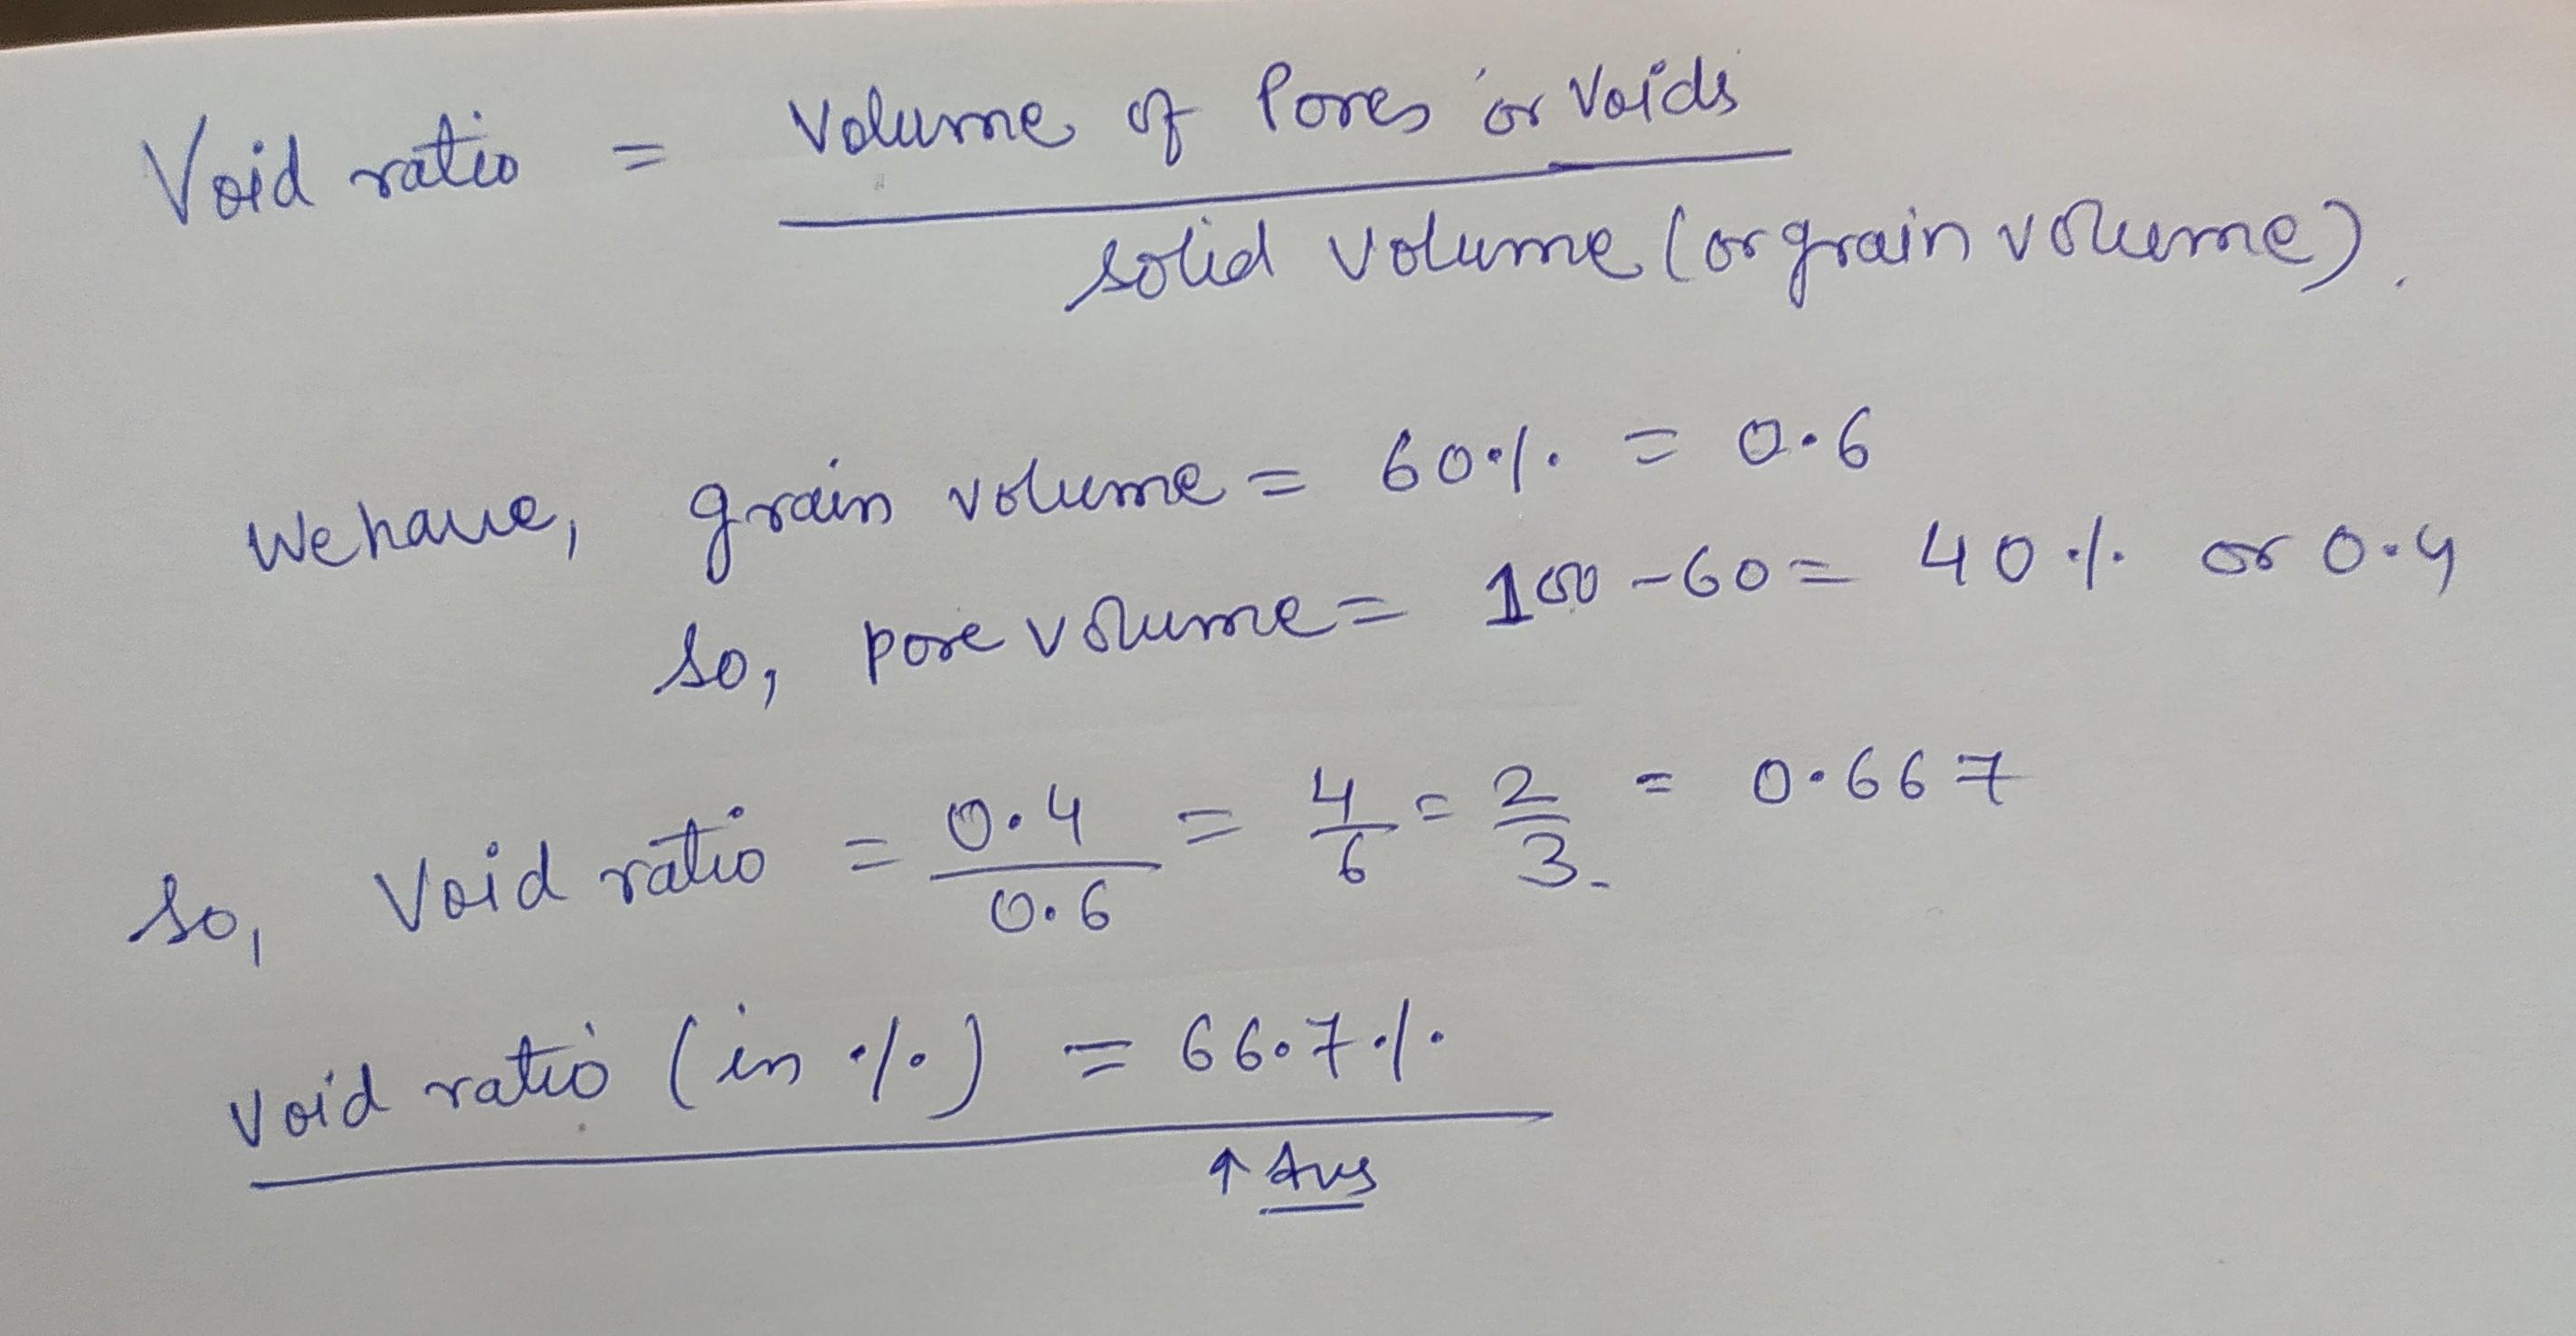 Void ratio = Volume of Pores or Voids
solid volume (or grain volume).
We have, grain volume = 60% = 0.6
So, pore volume = 100 - 60 = 40% or 0.4
So, Void ratio = 0.4/0.6 = 4/6 = 2/3. = 0.667
Void ratio (in %) = 66.7%
↑ Ans